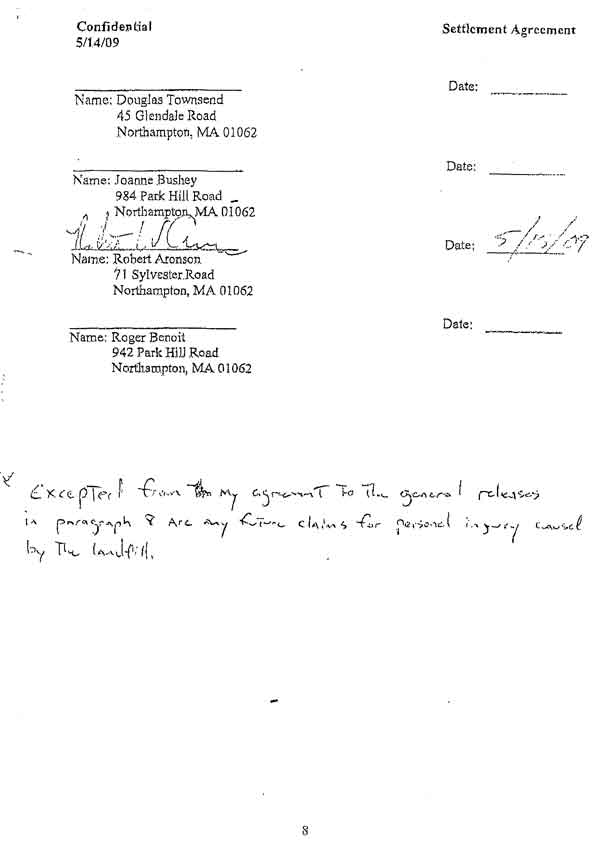 Confidential
Settlement Agreement
5/14/09
Date:
Name: Douglas Townsend
45 Glendale Road
Northampton, MA 01062
Date:
Name: Joanne Bushey
984 Park Hill Road
Northampton, MA 01062
Date: 5/15/09
Name: Robert Aronson
71 Sylvester Road
Northampton, MA 01062
Date:
Name: Roger Benoit
942 Park Hill Road
Northampton, MA 01062
Excepted from my agreement to the general releases
in paragraph 8 are any future claims for personal ingury caused
by the landfill.
8